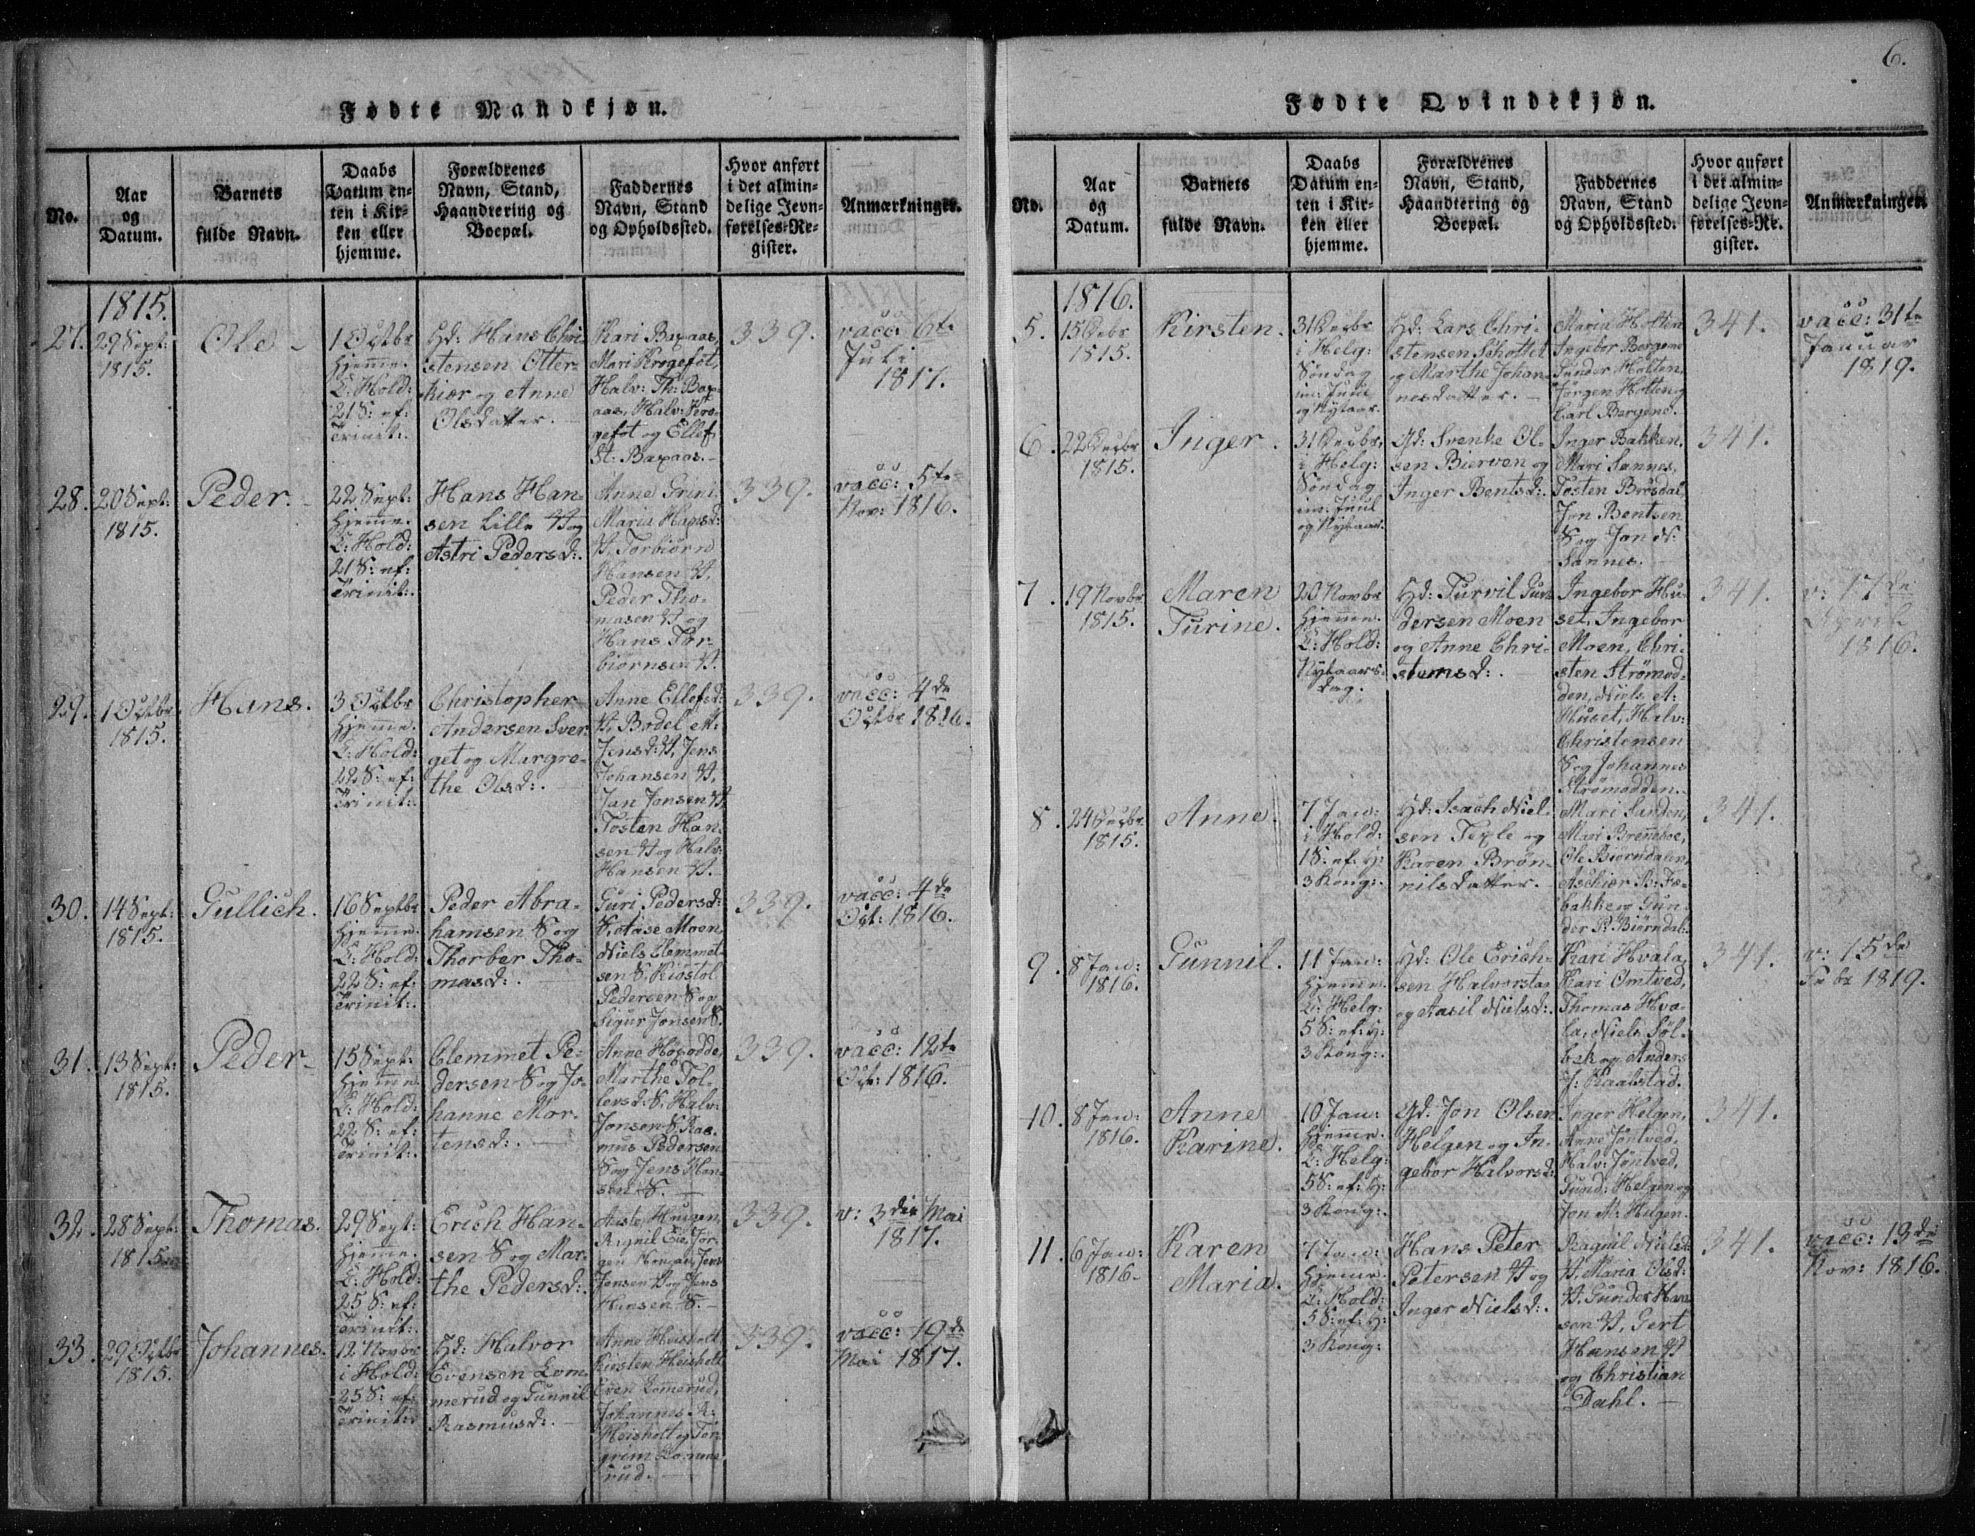 6.
Fødte Mandkjøn.
No.
Aar
og
Datum.
Barnets
fulde Navn.
Daabs
Datum en-
ten i Kir-
ken eller
hjemme.
Forældrenes
Navn, Stand,
Haandtering og
Boepæl.
Faddernes
Navn, Stand
og Opholdssted.
Hvor anført
i det almin-
delige Jevn-
førelses-Re-
gister.
Anmærkninger.
1815.
27.
29 Sept:
1815.
Ole
1 Octbr
hjemme.
C: Hold:
21 S: ef:
Trinit:.
Hd: Hans Chri-
stensen Otter-
kiær og Anne
Olsdatter.
Kari Baxaas,
Mari Krogefot,
Halv: Th: Bax-
aas, Halv: Kro-
gefot og Ellef
St: Baxaas.
339.
vacc: 6te
Juli
1817.
28.
20 Sept:
1815.
Peder.
22 Sept:
hjemme.
C: Hold:
21 S: ef:
Trinit:.
Hans Han-
sen Lille H og
Astri Pedersd:.
Anne Grini
Maria Hansd:
H, Torbiørn
Hansen H,
Peder Tho-
masen H og
Hans Tor-
biørnsen H.
339.
vacc: 5te
Nov: 1816.
29.
1 Octbr
1815.
Hans.
3 Octbr
hjemme.
C: Hold:
22 S: ef:
Trinit:.
Christopher
Andersen Sver-
get og Margre-
the Olsd:.
Anne Ellefsd:
H, Bodel M:
Jensd: H, Jens
Johansen H,
Jan Jonsen H
Tosten Han-
sen H og Halv:
Hansen H.
339.
vacc: 4de
Octbr 1816.
30.
14 Sept:
1815.
Gullich.
16 Septbr
hjemme.
C: Hold:
22 S: ef:
Trinit:.
Peder Abra-
hamsen S og
Thorber Tho-
masd:.
Guri Pedersd:
S, Aase Moen,
Niels Clemmet-
sen S, Kiøstol
Pedersen S og
Sigur Jonsen S.
339.
vacc: 4de
Oct: 1816.
31.
13 Sept:
1815.
Peder
15 Sept:
hjemme.
C: Hold:
22 S: ef:
Trinit:.
Clemmet Pe-
dersen S og Jo-
hanne Mor-
tensd:.
Anne Hoxodde,
Marthe Tol-
levsd: S, Halv:
Jonsen S Ras-
mus Pedersen
S og Jens Han-
sen S.
339.
vacc: 12te
Oct: 1816.
32.
28 Sept:
1815.
Thomas.
29 Sept:
hjemme.
C: Hold:
25 S: ef:
Trinit:.
Erich Han-
sen S og Mar-
the Pedersd:.
Jonsen S og Jens
Hansen S.
339.
v: 3die Mai
1817.
33.
29 Octbr
1815.
Johannes.
12 Novbr
i Hold:
25 S: ef:
Trinit:
Hd: Halvor
Evensen Lom-
merud og Gunnil
Rasmusd:.
Anne Heisholt
Kirsten Heisholt
Even Lommerud,
Johannes R:
Heisholt og Tor-
grim Lomme-
rud.
339.
vacc: 19de
Mai 1817.
Fødte Qvindekjøn.
No.
Aar
og
Datum.
Barnets
fulde Navn.
Daabs
Datum en-
ten i Kir-
ken eller
hjemme.
Forældrenes
Navn, Stand,
Haandtering og
Boepæl.
Faddernes
Navn, Stand
og Opholdssted.
Hvor anført
i det almin-
delige Jevn-
førelses-Re-
gister.
Anmærkninger.
1816.
5.
15 Decbr
1815.
Kirsten.
31 Decbr
i Helg:
Søndag
im: Juul
og Nytaar.
Hd: Lars Chri-
stensen Schottet
og Marthe Johan-
nesdatter.
Maria Holten
Ingebor Bergene
Gunder Holten,
Jørgen Holten og
Carl Bergene.
341.
vacc: 31te
Januar
1819.
6.
22 Decbr
1815.
Inger.
31 Decbr.
i Helg:
Søndag
im: Juul
og Nytaar.
Gd: Svenke Ol-
sen Bierven og
Inger Bentsd:.
Inger Bakken,
Mari Sannes,
Tosten Brøsdal,
Jon Bentsen
S og Jon N:
Sannes.
341.
7.
19 Novbr
1815.
Maren
Turine.
20 Novbr
hjemme.
C: Hold:
Nytaars-
dag.
Hd: Turvil Gun-
dersen Moen
og Anne Chri-
stensd:.
Ingebor Hu-
set, Ingebor
Moen, Chri-
sten Strømod-
den, Niels A:
Huset, Halv:
Christensen
S og Johannes
Strømodden.
341.
v: 17de
April
1816.
8.
24 Decbr
1815.
Anne.
7 Jan:
i Hold:
1 S: ef: H:
3 Kong:.
Hd: Isach Niel-
sen Texle og
Karen Brøn-
nilsdatter.
Mari Sanden,
Mari Brenneboe,
Ole Biørndalen,
Aschier B: Fs-
bakke og Gun-
der P: Biørndal:
341.
9.
8 Jan:
1816.
Gunnil.
11 Jan:
hjemme.
C: Helg:
5 S: ef: H:
3 Kong:.
Hd: Ole Erich-
sen Halvorsta
og Aasil Nielsd:.
Kari Hvala,
Kari Omtved,
Thomas Hva-
la, Niels Søl-
bek og Anders
J: Kaalstad.
341.
v: 15de
Febr 1819.
10.
8 Jan:
1816.
Anne
Karine.
10 Jan:
hjemme.
C: Helg:
5 S: ef: H:
3 Kong:.
Gd: Jon Olsen
Helgen og In-
gebor Halvorsd:
Inger Helgen,
Anne Jøntved,
Halv: Jøntved,
Gund: Helgen og
Jon N: Helgen.
341.
11.
6 Jan:
1816.
Karen
Maria.
7 Jan:
hjemme.
C: Hold:
5 S: ef: H:
3 Kong:
Hans Peter
Petersen H og
Inger Nielsd:.
Ragnil Nielsd:
H, Maria Olsd:
H, Gunder Han-
sen H, Gert
Hansen H
og Christian
Dahl.
341.
vacc: 13de
Nov: 1816.